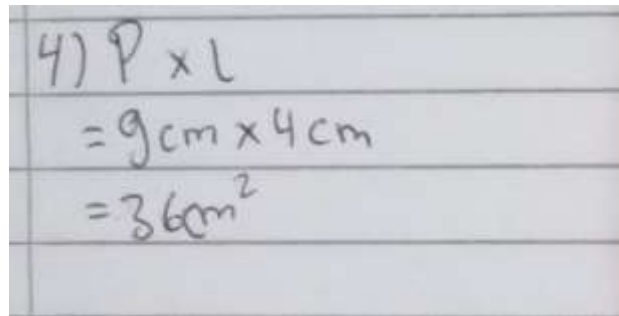 4) P x l
= 9cm x 4cm
= 36cm²